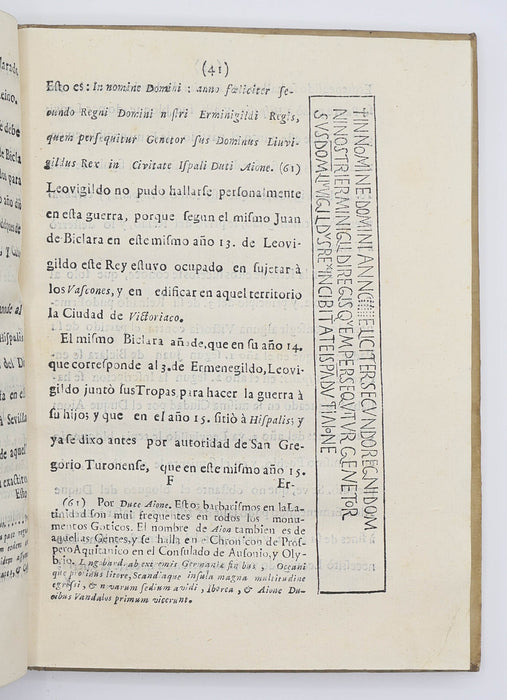 (41)
Esto es: In nomine Domini: anno fœliciter se-
cundo Regni Domini nstri Erminigildi Regis,
quem persequitur Genetor sus Dominus Liuvi-
gildus Rex in Civitate Ispali Duti Aione. (61)
Leovigildo no pudo hallarse personalmente
en esta guerra, porque segun el mismo Juan
de Biclara en este mismo año 13. de Leovi-
gildo este Rey estuvo ocupado en sujetar à
los Vascones, y en edificar en aquel territorio
la Ciudad de Victoriaco.
El mismo Biclara añade, que en su año 14.
que corresponde al 3. de Ermenegildo, Leovi-
gildo juntó sus Tropas para hacer la guerra à
su hijo; y que en el año 15. sitiò à Hispalis; y
ya se dixo antes por autoridad de San Gre-
gorio Turonense, que en este mismo año 15.
F Er-
(61) Por Dute Aione. Estos barbarismos en la La-
tinidad son mui frequentes en todos los monu-
mentos Goticos. El nombre de Aion tambien es de
aquellas Gentes, y se halla en el Chronicon de Pros-
pero Aquitanico en el Consulado de Ausonio, y Oly-
brio. Langobard. ab extremis Germaniæ finibus, Oceani
que protinus litore, Scandiaque insula magna multitudine
egressi, & novarum sedium avidi, Iborea, & Aione Du-
cibus Vandalos primum vicerunt.
†INNOMINEDOMINIANNOFELICITERSECVNDOREGNIDOM
NINOSTRIERMINIGILDIREGISQVEMPERSEQVITVRGENETOR
SVSDOMLIVVIGILDVSREXINCIBITATEISPADVTIAIONE
Marado
cino.
debe
Biclara
para
año
Y Ca-
al
Hispalis
Sevilla
de aquel
exactito,
Esto